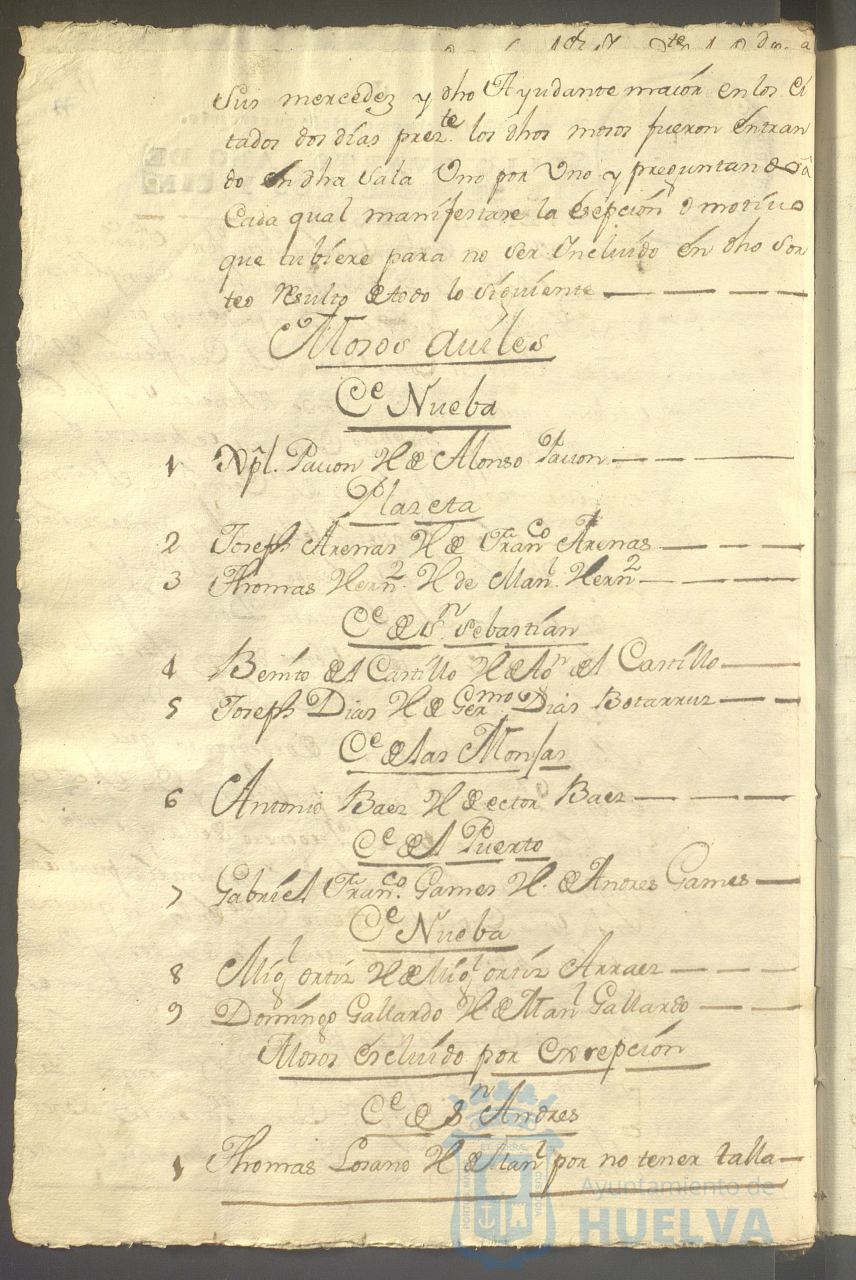 Sus mercedez y dho Ayudante maior en los ci
tados dos dias prezte. los dhos mosos fueron entran
do en dha sala Uno por Uno y preguntando â
Cada qual manifestase la esepción o motivo
que tubiere para no ser Yncluido en dho sor
teo Resulto de todo lo siguiente
Mosos aviles
Ce Nueba
1 Xpl. Pavon H de Alonso Pavon
Plazeta
2 Joseph Arenas H de Franco Arenas
3 Thomas Hernz. H de Manl. Hernz
Ce de Sn. Sebastian
4 Benito del Castillo H de Ton del Castillo
5 Joseph Dias H de Germo Dias Botarruz
Ce de las Monjas
6 Antonio Baez H de ector Baez
Ce del Puerto
7 Gabriel Franco. Games H. de Andres Games
Ce Nueba
8 Migl ortiz H de Migl ortiz Arraez
9 Domingo Gallardo H. de Manl Gallardo
Mosos escluido por Excepción
Ce de Sn Andres
1 Thomas Losano H de Manl por no tener talla
Ayuntamiento de
HUELVA